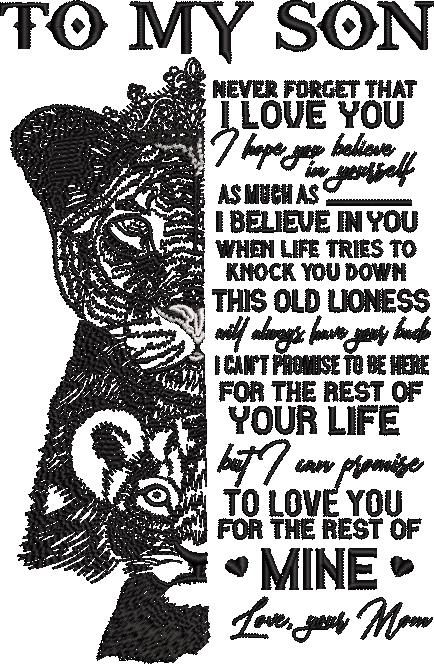 TO MY SON
NEVER FORGET THAT
I LOVE YOU
I hope you believe
in yourself
AS MUCH AS
I BELIEVE IN YOU
WHEN LIFE TRIES TO
KNOCK YOU DOWN
THIS OLD LIONESS
will always have your back
I CAN'T PROMISE TO BE HERE
FOR THE REST OF
YOUR LIFE
but I can promise
TO LOVE YOU
FOR THE REST OF
MINE
Love, your Mom